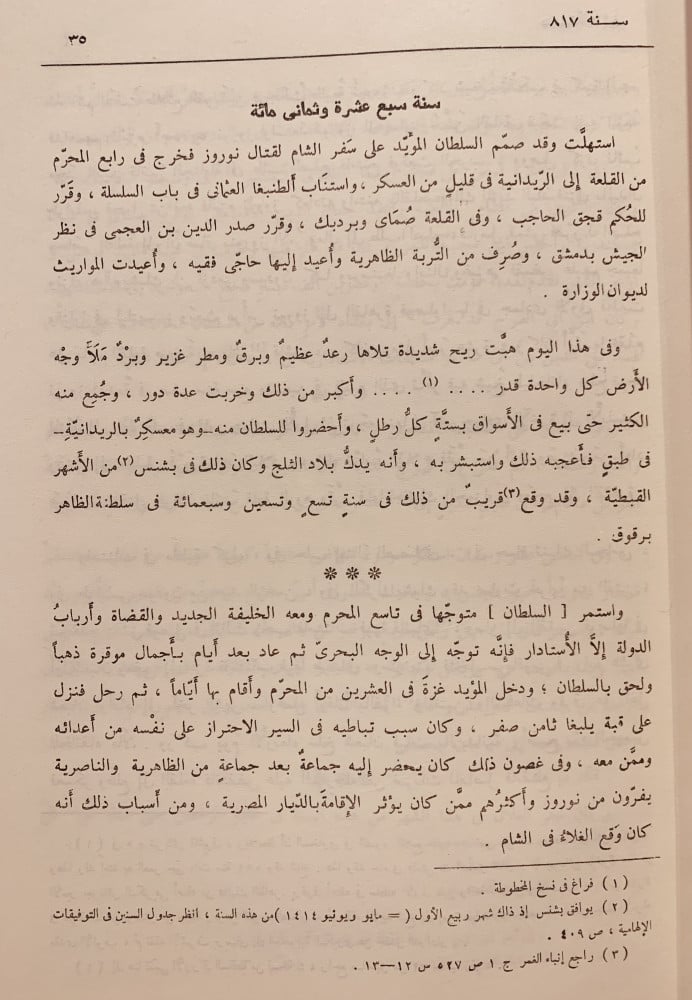 سنة ٨١٧
٣٥
سنة سبع عشرة وثمانى مائة
استهلَّت وقد صمّم السلطان المؤيّد على سَفر الشام لقتال نوروز فخرج فى رابع المحرّم
من القلعة إلى الرّيدانية فى قليلٍ من العسكر ، واستنَاب ألطنبغا العثمانى فى باب السلسلة ، وقَرّر
للحُكم قجق الحاجب ، وفى القلعة صُمَاى وبردبك ، وقرّر صدر الدين بن العجمى فى نظر
الجيش بدمشق ، وصُرِف من التُّربة الظاهرية وأُعيد إليها حاجّى فقيه ، وأُعيدت المواريث
لديوان الوزارة .
وفى هذا اليوم هبَّت ريح شديدة تلاها رعدٌ عظيمٌ وبرقٌ ومطر غزير وبرْدٌ مَلَأَ وجْه
الأَرض كل واحدة قدر .... (١) .... وأكبر من ذلك وخربت عدة دور ، وجُمِع منه
الكثير حتى بيع فى الأَسواق بستَّةٍ كلُّ رطلٍ ، وأحضروا للسلطان منه ــ وهو معسكِرٌ بالريدانيّةِ ــ
فى طبقٍ فأَعجبه ذلك واستبشر به ، وأنه يدكُّ بلاد الثلج وكان ذلك فى بشنس(٢) من الأَشهر
القبطيّة ، وقد وقع(٣) قريبٌ من ذلك فى سنةِ تسعٍ وتسعين وسبعمائة فى سلطنة الظاهر
برقوق .
* * *
واستمر [ السلطان ] متوجّها فى تاسع المحرم ومعه الخليفة الجديد والقضاة وأربابُ
الدولة إلاَّ الأُستادار فإنَّه توجّه إلى الوجه البحرىّ ثم عاد بعد أيام بأَجمال موقرة ذهباً
ولحق بالسلطان ؛ ودخل المؤيد غزةَ فى العشرين من المحرّم وأقام بها أيّاماً ، ثم رحل فنزل
على قبة يلبغا ثامن صفر ، وكان سبب تباطيه فى السير الاحتراز على نفْسه من أعدائه
وممَّن معه ، وفى غصون ذلك كان يحضر إليه جماعةٌ بعد جماعةٍ من الظاهرية والناصرية
يفرّون من نوروز وأكثرُهم ممَّن كان يؤثر الإقامةَ بالدّيار المصرية ، ومن أسباب ذلك أنه
كان وَقع الغلاءُ فى الشام .
( ١ ) فراغ فى نسخ المخطوطة .
( ٢ ) يوافق بشنس إذ ذاك شهر ربيع الأول ( = مايو ويونيو ١٤١٤ ) من هذه السنة ، انظر جدول السنين فى التوفيقات
الإلهامية ، ص ٤٠٩ .
( ٣ ) راجع إنباء الغمر ج ١ ص ٥٢٧ س ١٢ــ١٣ .